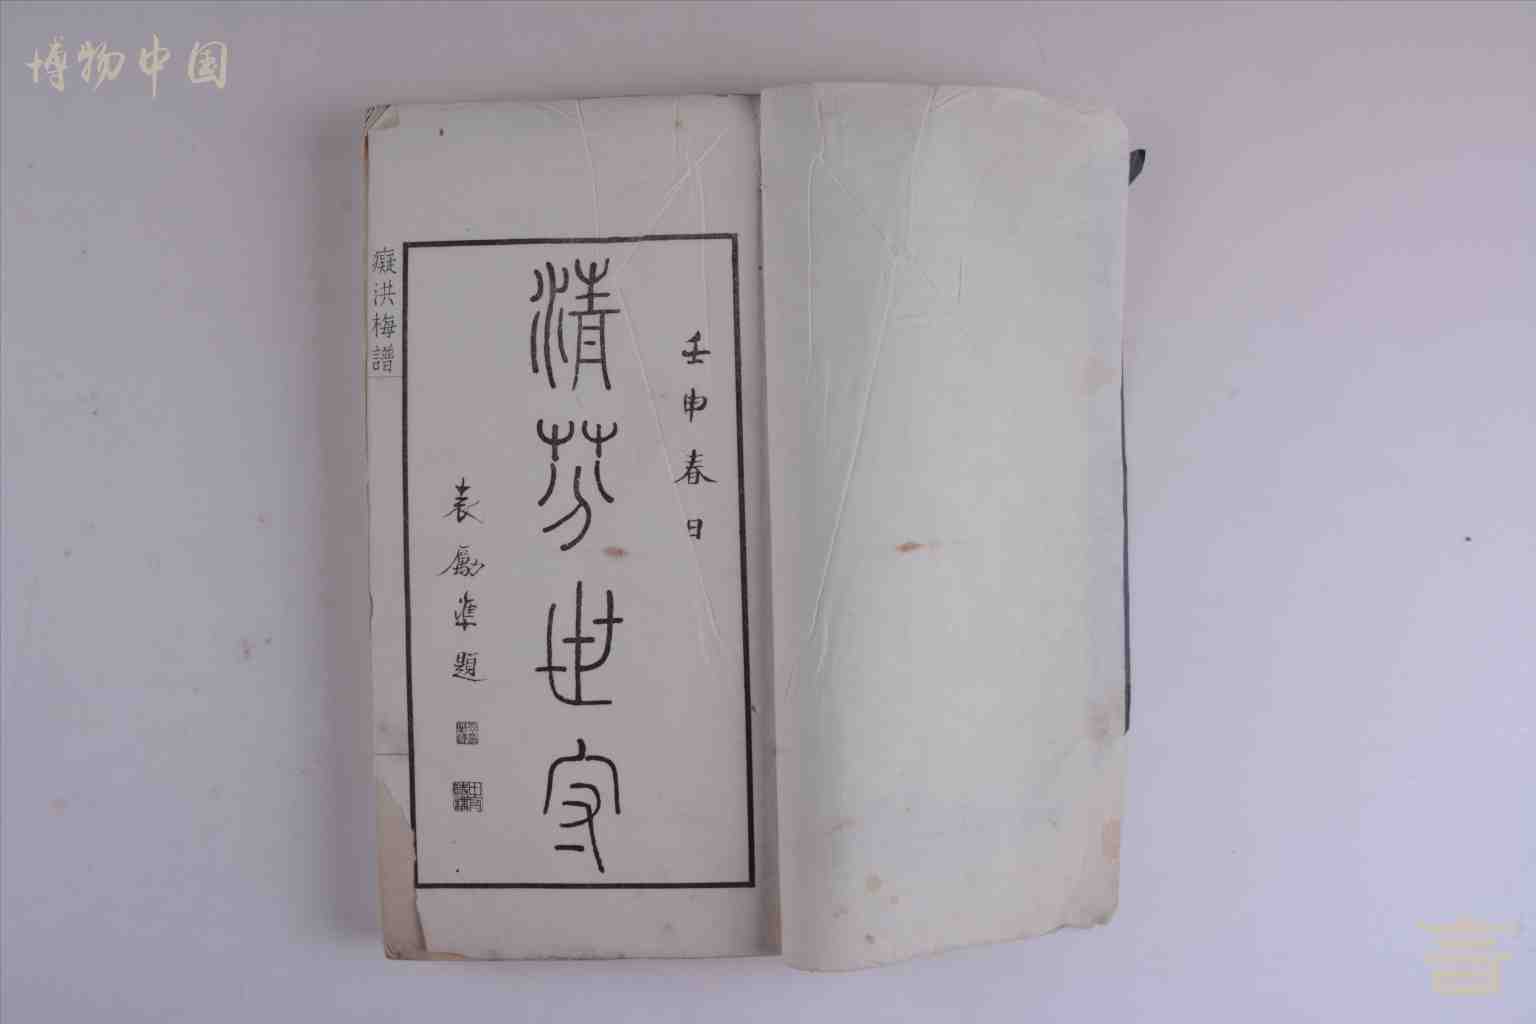 博物中国
壬申春日
清芬世守
袁勵準題
癡洪梅譜